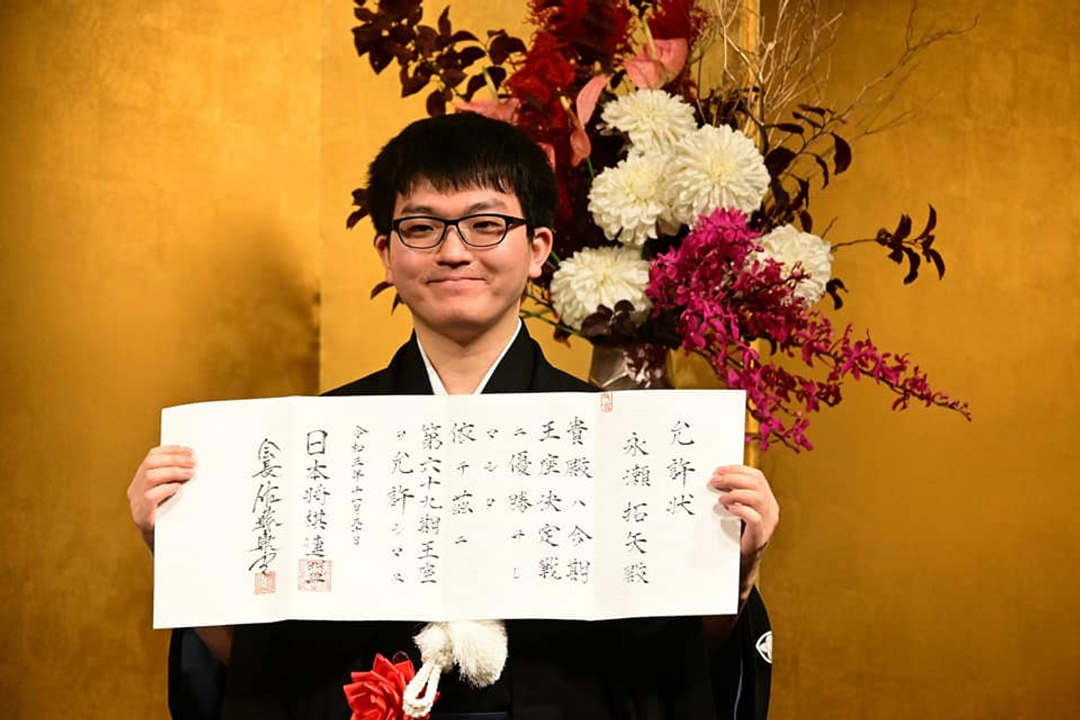 允許状
永瀬拓矢殿
貴殿ハ今期
王座決定戦
ニ優勝サレ
マシタ
依テ茲ニ
第六十九期王座
ヲ允許シマス
令和三年十一月
日本将棋連盟
会長佐藤康光